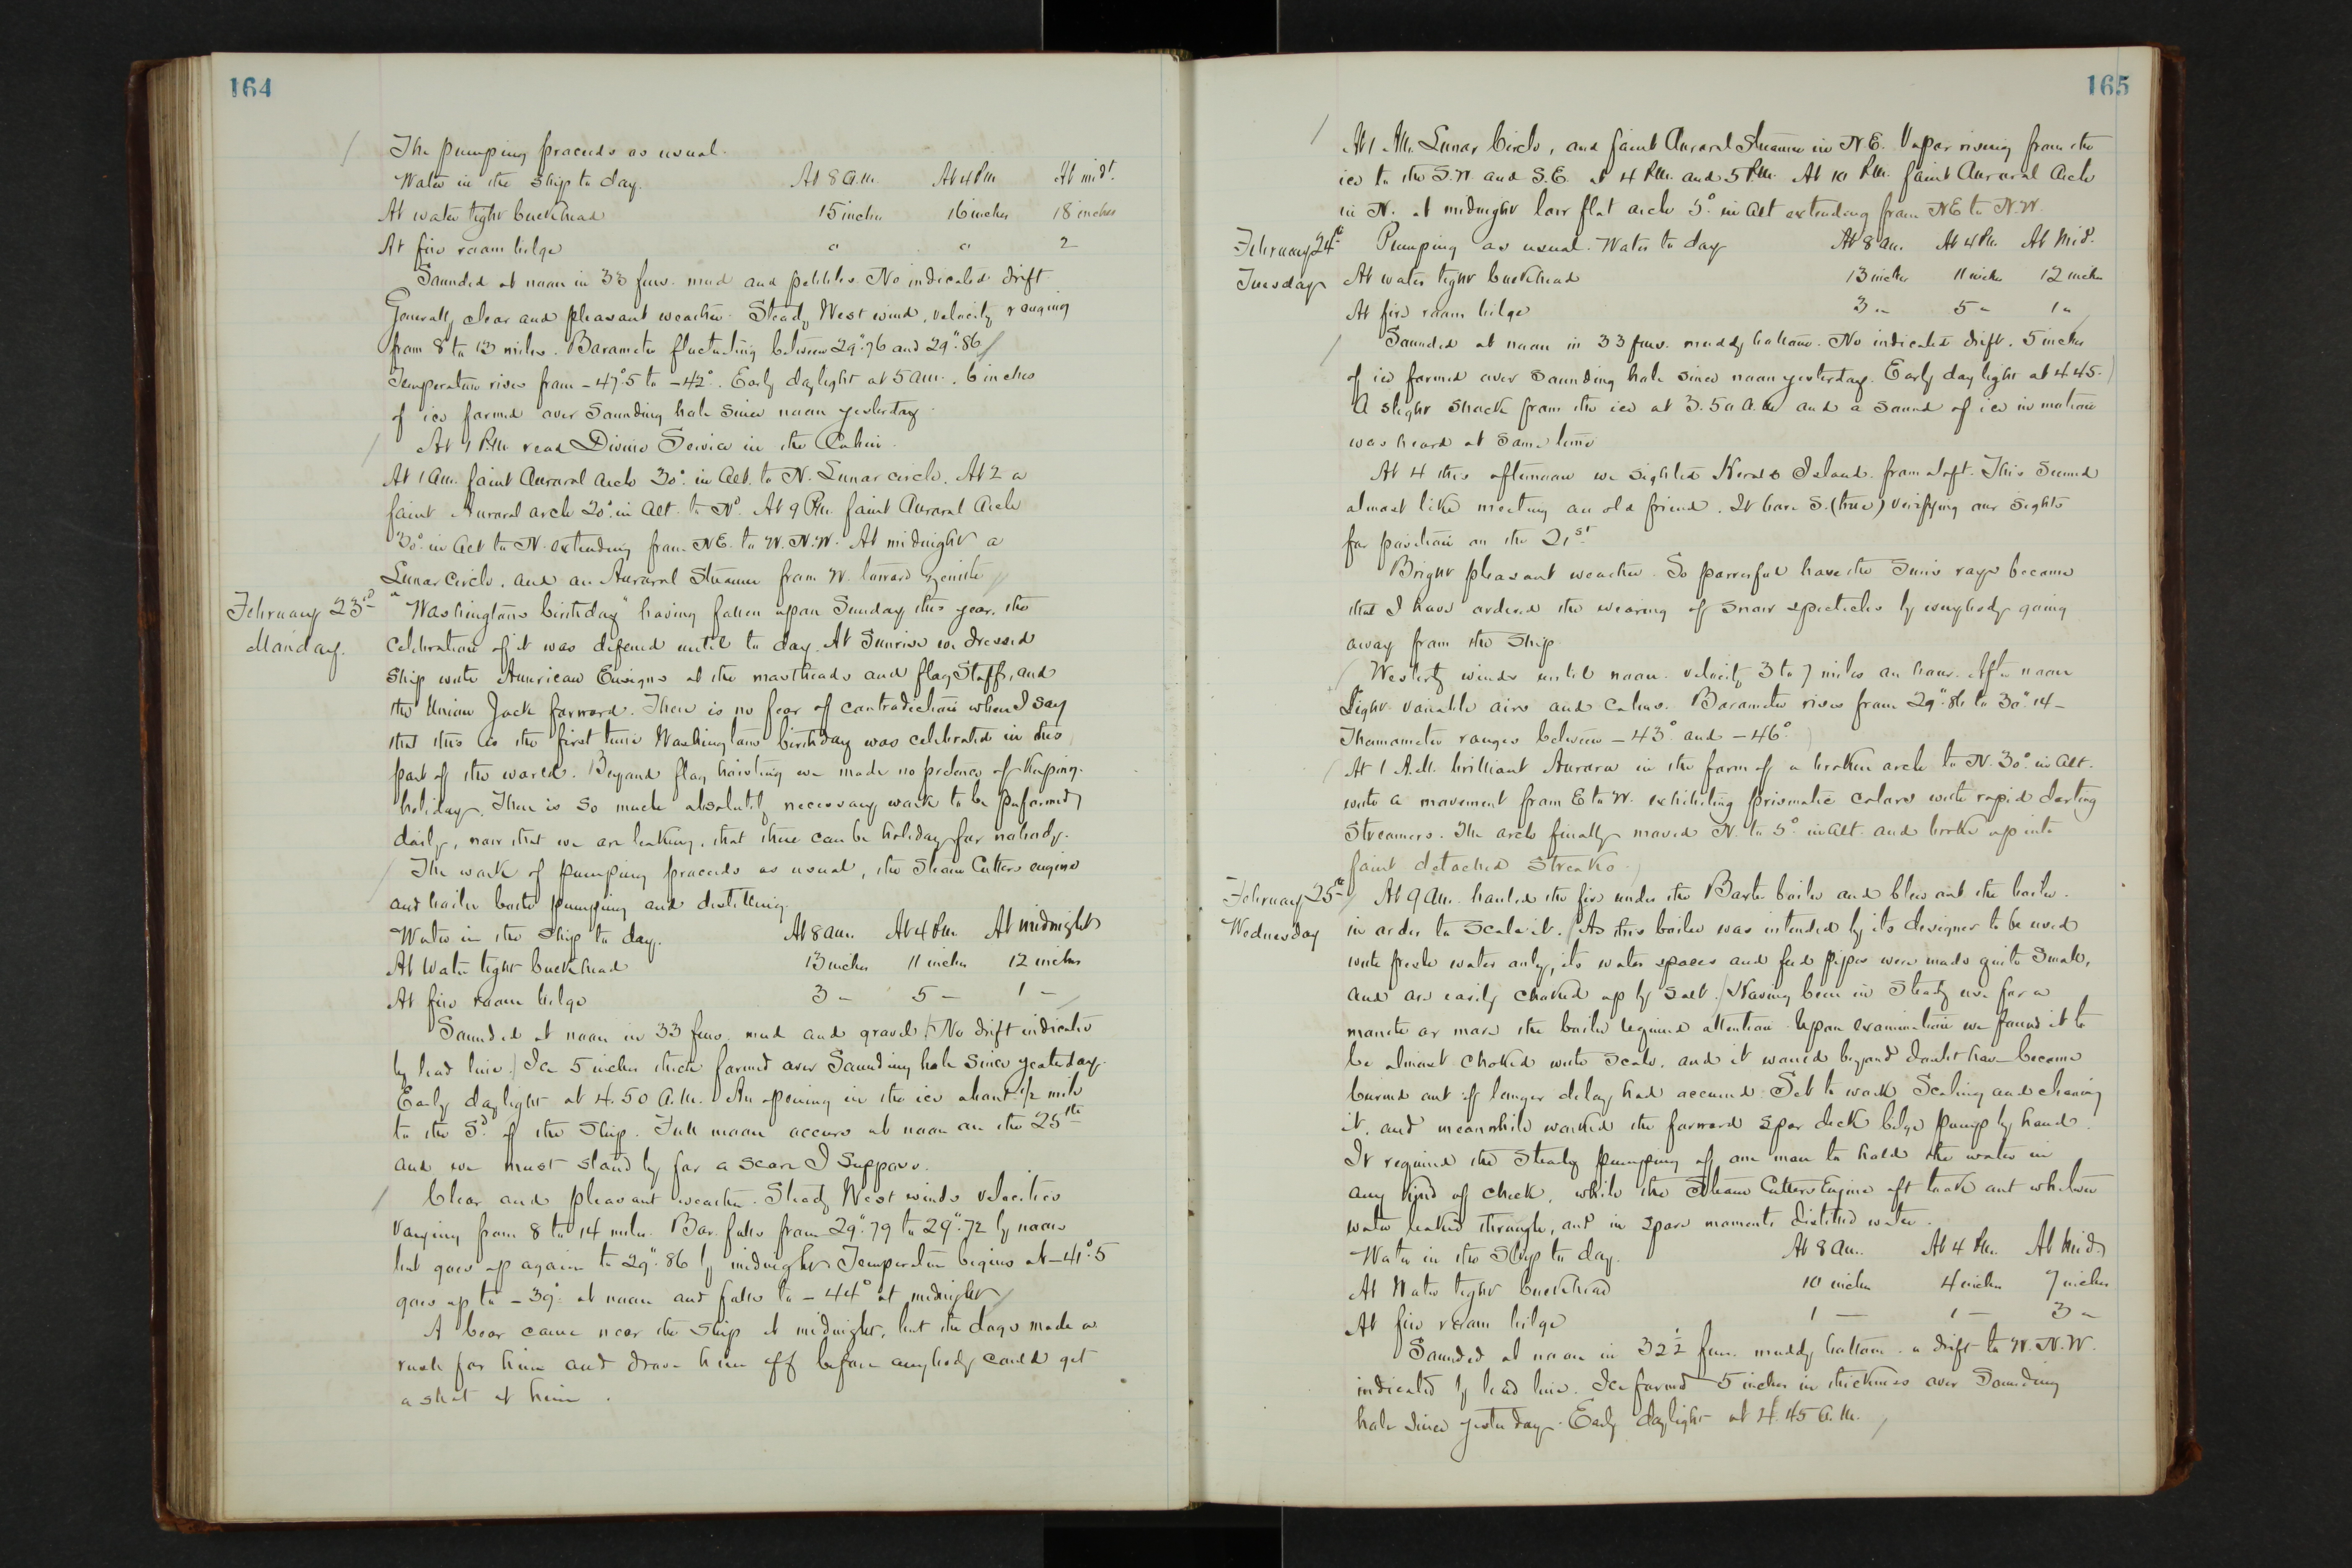 164
The pumping proceeds as usual.
Water in the ship to day. At 8 a.m. At 4 Pm At midt.
At water tight bulkhead 15 inches 16 inches 18 inches
At fire room bilge 0 0 2 —
Sounded at noon in 33 fms. mud and pebbles. No indicated drift
Generally clear and pleasant weather. Steady West wind, velocity ranging
from 8 to 13 miles. Barometer fluctuating between 29".76 and 29".86
Temperature rises from -47°.5 to -42°. Early daylight at 5 am. 6 inches
of ice formed over Sounding hole since noon yesterday.
At 1 P.M. read Divine Service in the Cabin.
At 1 am. faint Auroral Arch 30° in Alt. to N. Lunar circle. At 2 a
faint Auroral arch 20° in Alt. to Nd. At 9 Pm. faint Auroral Arch
30° in Alt to N. extending from NE. to W.N.W. At midnight a
Lunar Circle, and an Auroral Streamer from W. toward zenith
February 23rd Monday.
"Washington's birthday" having fallen upon Sunday this year, the
celebration of it was deferred until to day. At Sunrise we dressed
Ship with American Ensigns at the mastheads and flag Staff, and
the Union Jack forward. There is no fear of contradiction when I say
that this is the first time Washington's birthday was celebrated in this
part of the world. Beyond flag hoisting we made no pretence of keeping
holiday. There is so much absolutely necessary work to be performed
daily, now that we are leaking, that there can be holiday for nobody.
The work of pumping proceeds as usual, the Steam Cutters engine
and boiler both pumping and distilling.
Water in the Ship to day. At 8 am. At 4 Pm. At midnight
At Water tight bulkhead 13 inches 11 inches 12 inches
At fire room bilge 3 — 5 — 1 —
Sounded at noon in 33 fms. mud and gravel. No drift indicated
by lead line. Ice 5 inches thick formed over Sounding hole since yesterday.
Early daylight at 4.50 A.M. An opening in the ice about 1/2 mile
to the Sd. of the Ship. Full moon occurs at noon on the 25th
and we must stand by for a scare I suppose.
Clear and pleasant weather. Steady West winds velocities
varying from 8 to 14 miles. Bar. falls from 29".79 to 29".72 by noon
but goes up again to 29".86 by midnight. Temperature begins at -41°.5
goes up to -39° at noon and falls to -44° at midnight
A bear came near the ship at midnight, but the dogs made a
rush for him and drove him off before anybody could get
a shot at him.
165
At 1 AM. Lunar Circle, and faint Auroral Streamer in N.E. Vapor rising from the
ice to the S.W. and S.E. at 4 P.M. and 5 P.M. At 10 P.M. faint Auroral Arch
in N. at midnight low flat arch 5° in Alt extending from NE to N.W.
February 24th Tuesday
Pumping as usual. Water to day At 8 am. At 4 Pm. At Mid.
At water tight bulkhead 13 inches 11 inches 12 inches
At fire room bilge 3 " 5 " 1 "
Sounded at noon in 33 fms. muddy bottom. No indicated drift. 5 inches
of ice formed over sounding hole since noon yesterday. Early daylight at 4.45.
A slight shock from the ice at 3.50 A.M. and a sound of ice in motion
was heard at same time
At 4 this afternoon we sighted Herald Island from aloft. This seemed
almost like meeting an old friend. It bore S. (true) verifying our sights
for position on the 21st.
Bright pleasant weather. So powerful have the Sun's rays become
that I have ordered the wearing of snow spectacles by everybody going
away from the ship.
Westerly winds until noon. velocity 3 to 7 miles an hour. After noon
Light variable airs and calms. Barometer rises from 29".86 to 30".14 —
Thermometer ranges between -43° and -46°
At 1 A.M. brilliant Aurora in the form of a broken arch to N. 30° in Alt.
with a movement from E to W. exhibiting prismatic colors with rapid darting
Streamers. The arch finally moved N. to 5° in Alt. and broke up into
faint detached Streaks.
February 25th Wednesday
At 9 am. hauled the fire under the Baxter boiler and blew out the boiler
in order to scale it. As this boiler was intended by its designer to be used
with fresh water only, its water spaces and feed pipes were made quite small,
and are easily choked up by salt. Having been in Steady use for a
month or more the boiler required attention. Upon examination we found it to
be almost choked with scale, and it would beyond doubt have become
burned out if longer delay had occurred. Set to work Scaling and cleaning
it, and meanwhile worked the forward spar deck bilge pump by hand.
It required the Steady pumping of one man to hold the water in
any kind of check, while the Steam Cutters Engine aft took out whatever
water leaked through, and in spare moments distilled water.
Water in the Ship to day. At 8 Am. At 4 Pm. At Mid.
At Water tight bulkhead 10 inches 4 inches 7 inches
At fire room bilge 1 — 1 — 3 "
Sounded at noon in 32 1/2 fms. muddy bottom. a drift to W.N.W.
indicated by lead line. Ice formed 5 inches in thickness over Sounding
hole since yesterday. Early daylight at 4.45 A.M.